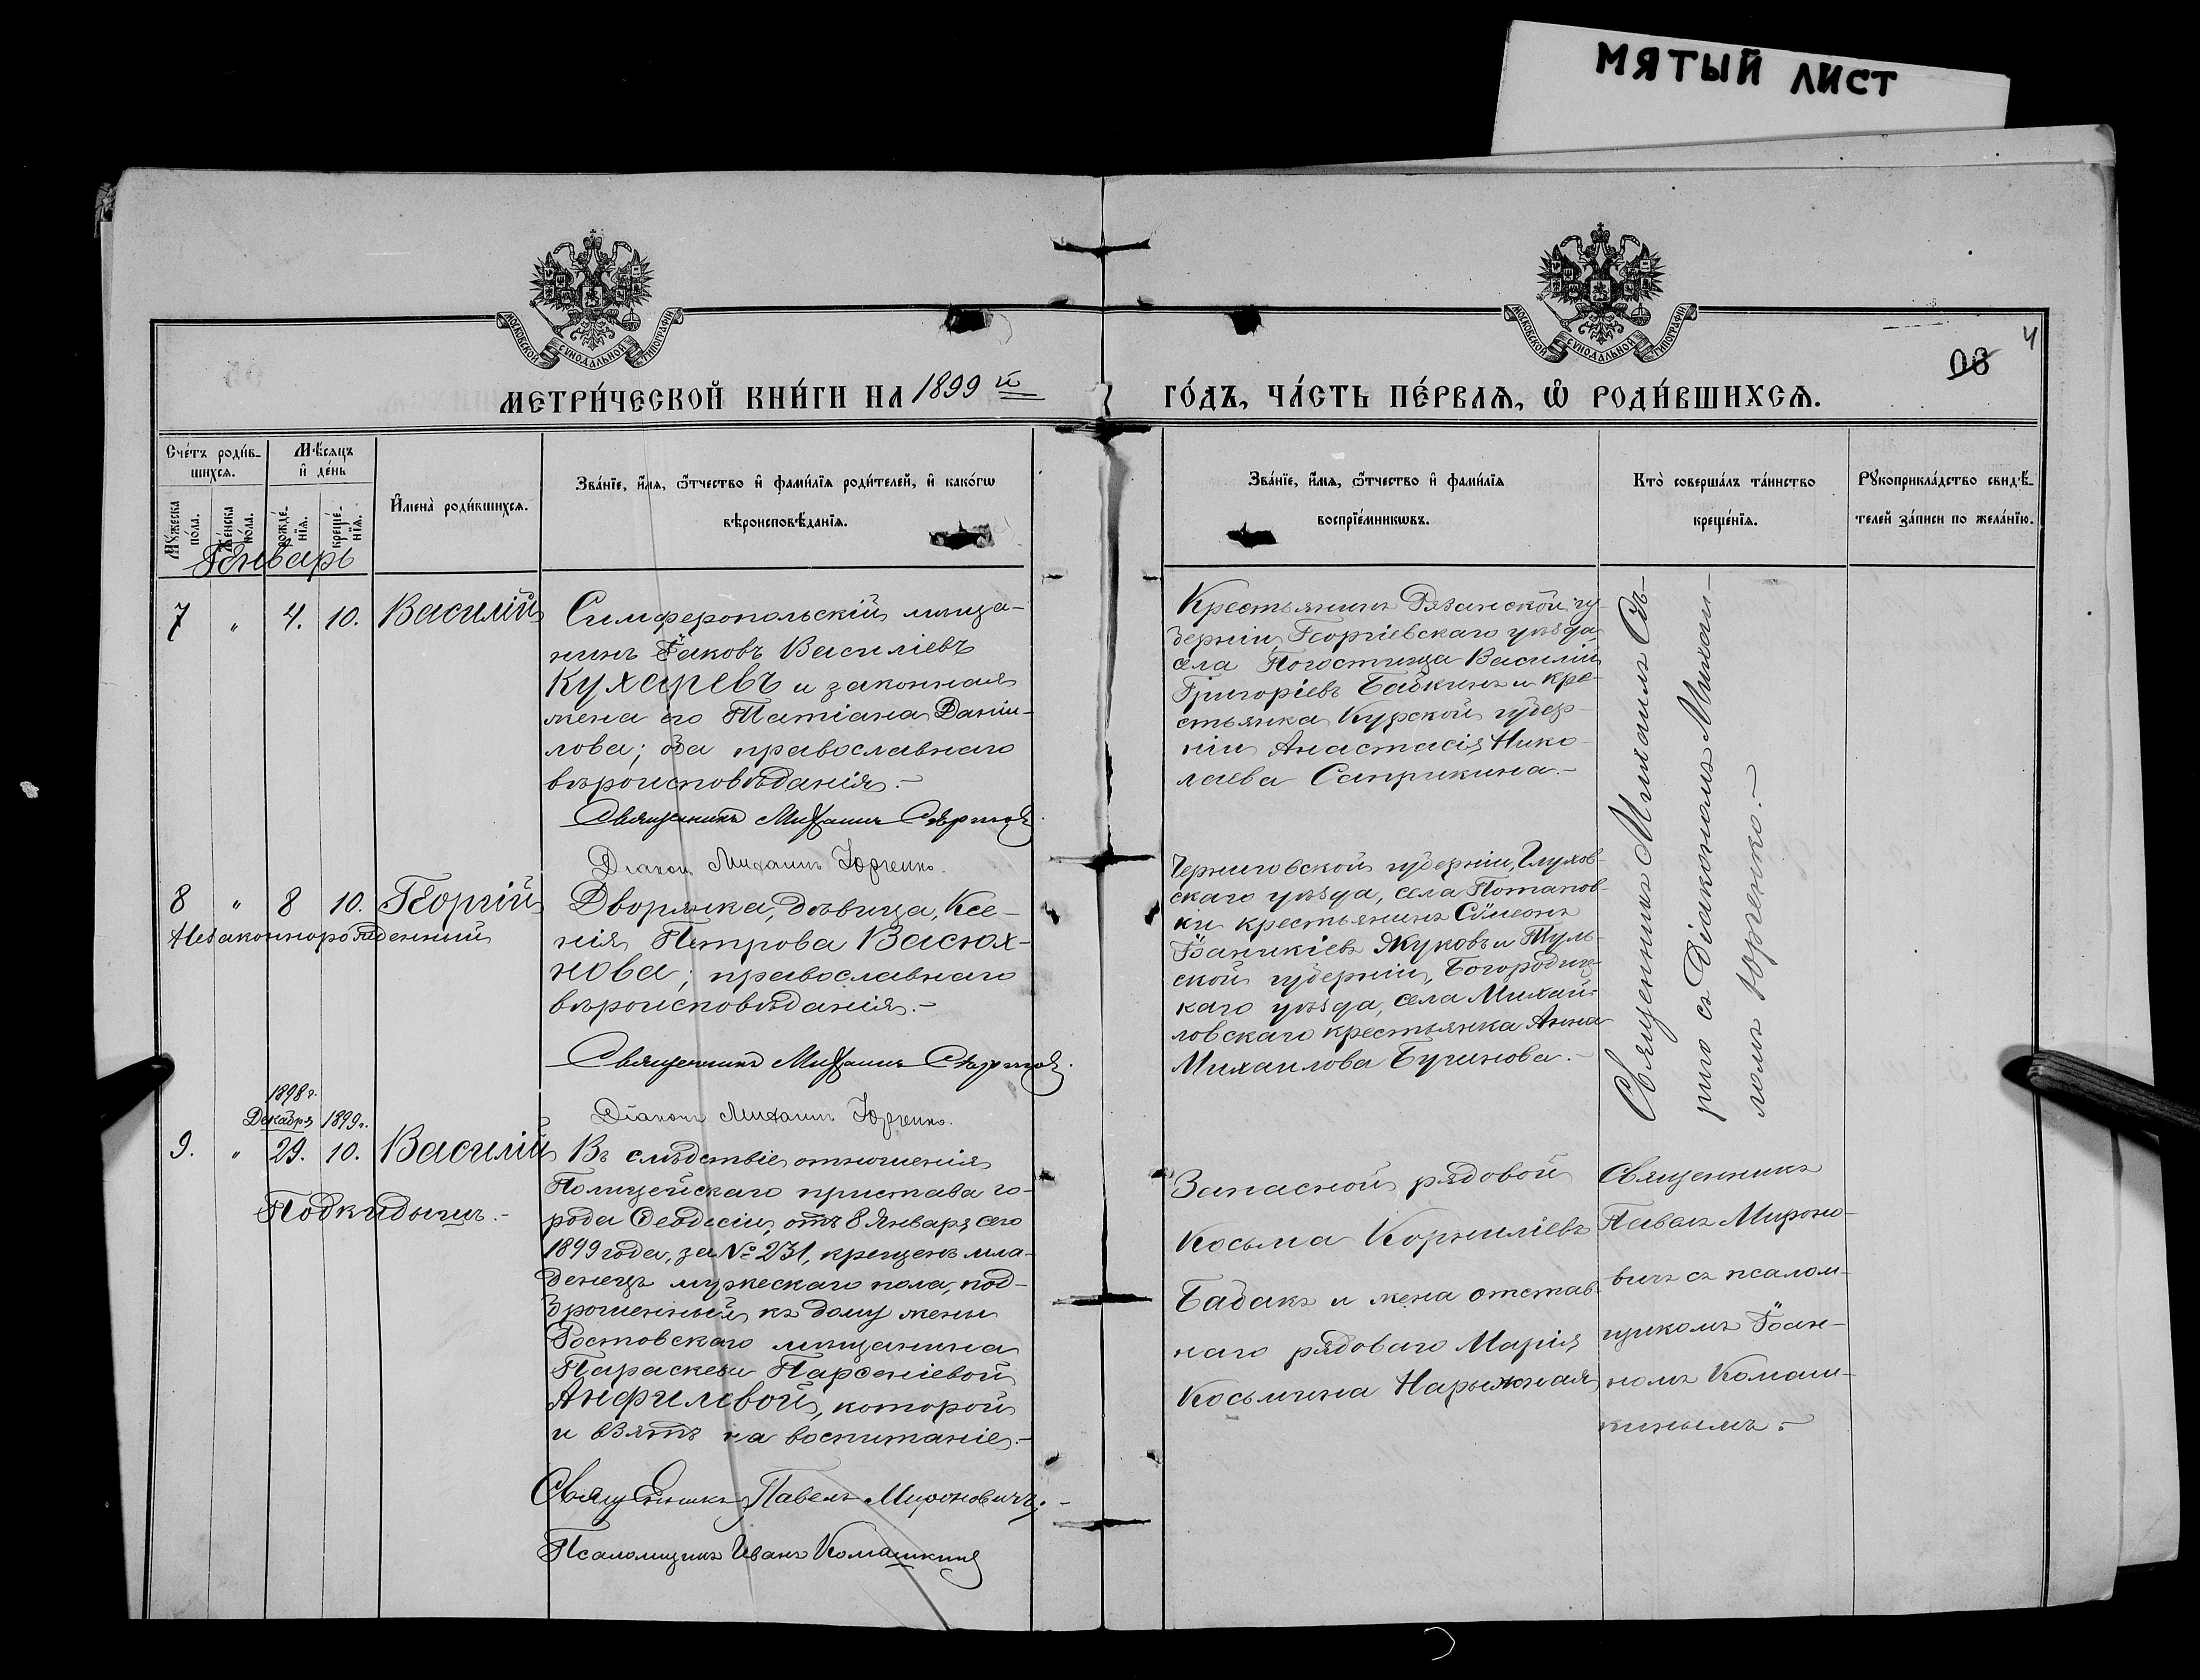 МЯТЫЙ ЛИСТ
МОСКОВСКОЙ СѴНОДАЛЬНОЙ ТИПОГРАФІИ
МОСКОВСКОЙ СѴНОДАЛЬНОЙ ТИПОГРАФІИ
4
03
МЕТРИ́ЧЕСКОЙ КНИ́ГИ НА 1899 й
ГО́ДЪ, ЧА́СТЬ ПЕ́РВАѦ, Ѡ҆ РОДИ́ВШИХСѦ.
Сче́тъ роди́в-
шихсѧ.
Мѣ́сѧцъ
и҆ де́нь
Мꙋ́жеска
по́ла.
Же́нска
по́ла.
рожде́-
нїѧ.
креще́-
нїѧ.
И҆мена̀ роди́вшихсѧ.
Зва́нїе, и҆́мѧ, ѻ҆́тчество и҆ фами́лїѧ роди́телей, и҆ како́гѡ
вѣроисповѣ́данїѧ.
Зва́нїе, и҆́мѧ, ѻ҆́тчество и҆ фами́лїѧ
воспрїе́мникѡвъ.
Кто̀ соверша́лъ та́инство
креще́нїѧ.
Рꙋкоприкла́дство свидѣ́-
телей за́писи по жела́нїю.
Генварь
7 " 4. 10. Василій
Симферопольскій мѣща-
нинъ Іаковъ Василіевъ
Кухаревъ и законная
жена его Татіана Даніи-
лова; оба православнаго
вѣроисповѣданія.-
Священникъ Михаилъ
Діаконъ Михаилъ Юрченко.
Крестьянинъ Рязанской гу-
берніи, Георгіевскаго уѣзда,
села Погостища Василій
Григоріевъ Бабкинъ и кре-
стьянка Курской губер-
ніи Анастасія Нико-
лаева Саприкина.-
Священникъ Михаилъ Сѣ-
рио съ Діакономъ Михаи-
ломъ Юрченко.-
8 " 8 10. Георгій
Незаконнорожденный
Дворянка, дѣвица, Ксе-
нія Петрова Васюх-
нова; православнаго
вѣроисповѣданія.-
Священникъ Михаилъ
Діаконъ Михаилъ Юрченко.
Черниговской губерніи, Глухов-
скаго уѣзда, села Потапов-
ки крестьянинъ Сѵмеонъ
Жуковъ и Туль-
ской губерніи, Богородиц-
каго уѣзда, села Михай-
ловскаго крестьянка Анна
Михаилова Бугинова.-
1898 г.
Декабря 1899 г.
9. " 29. 10. Василій
Подкидышъ.-
Въ слѣдствіе отношенія
Полицейскаго пристава го-
рода Ѳеодосіи, отъ 8 Января сего
1899 года, за № 231, крещенъ мла-
денецъ мужескаго пола, под-
брошенный къ дому жены
Ростовскаго мѣщанина
Параскевы Парѳеніевой
Анфиловой, которой
и взятъ на воспитаніе.-
Священникъ Павелъ Мироновичъ.-
Псаломщикъ Иванъ Комашкинъ
Запасной рядовой
Косьма Корниліевъ
Бабакъ и жена отстав-
наго рядоваго Марія
Косьмина Нарыжная
Священникъ
Павелъ Мироно-
вичъ съ псалом-
щикомъ Іоан-
номъ Комаш-
кинымъ.-